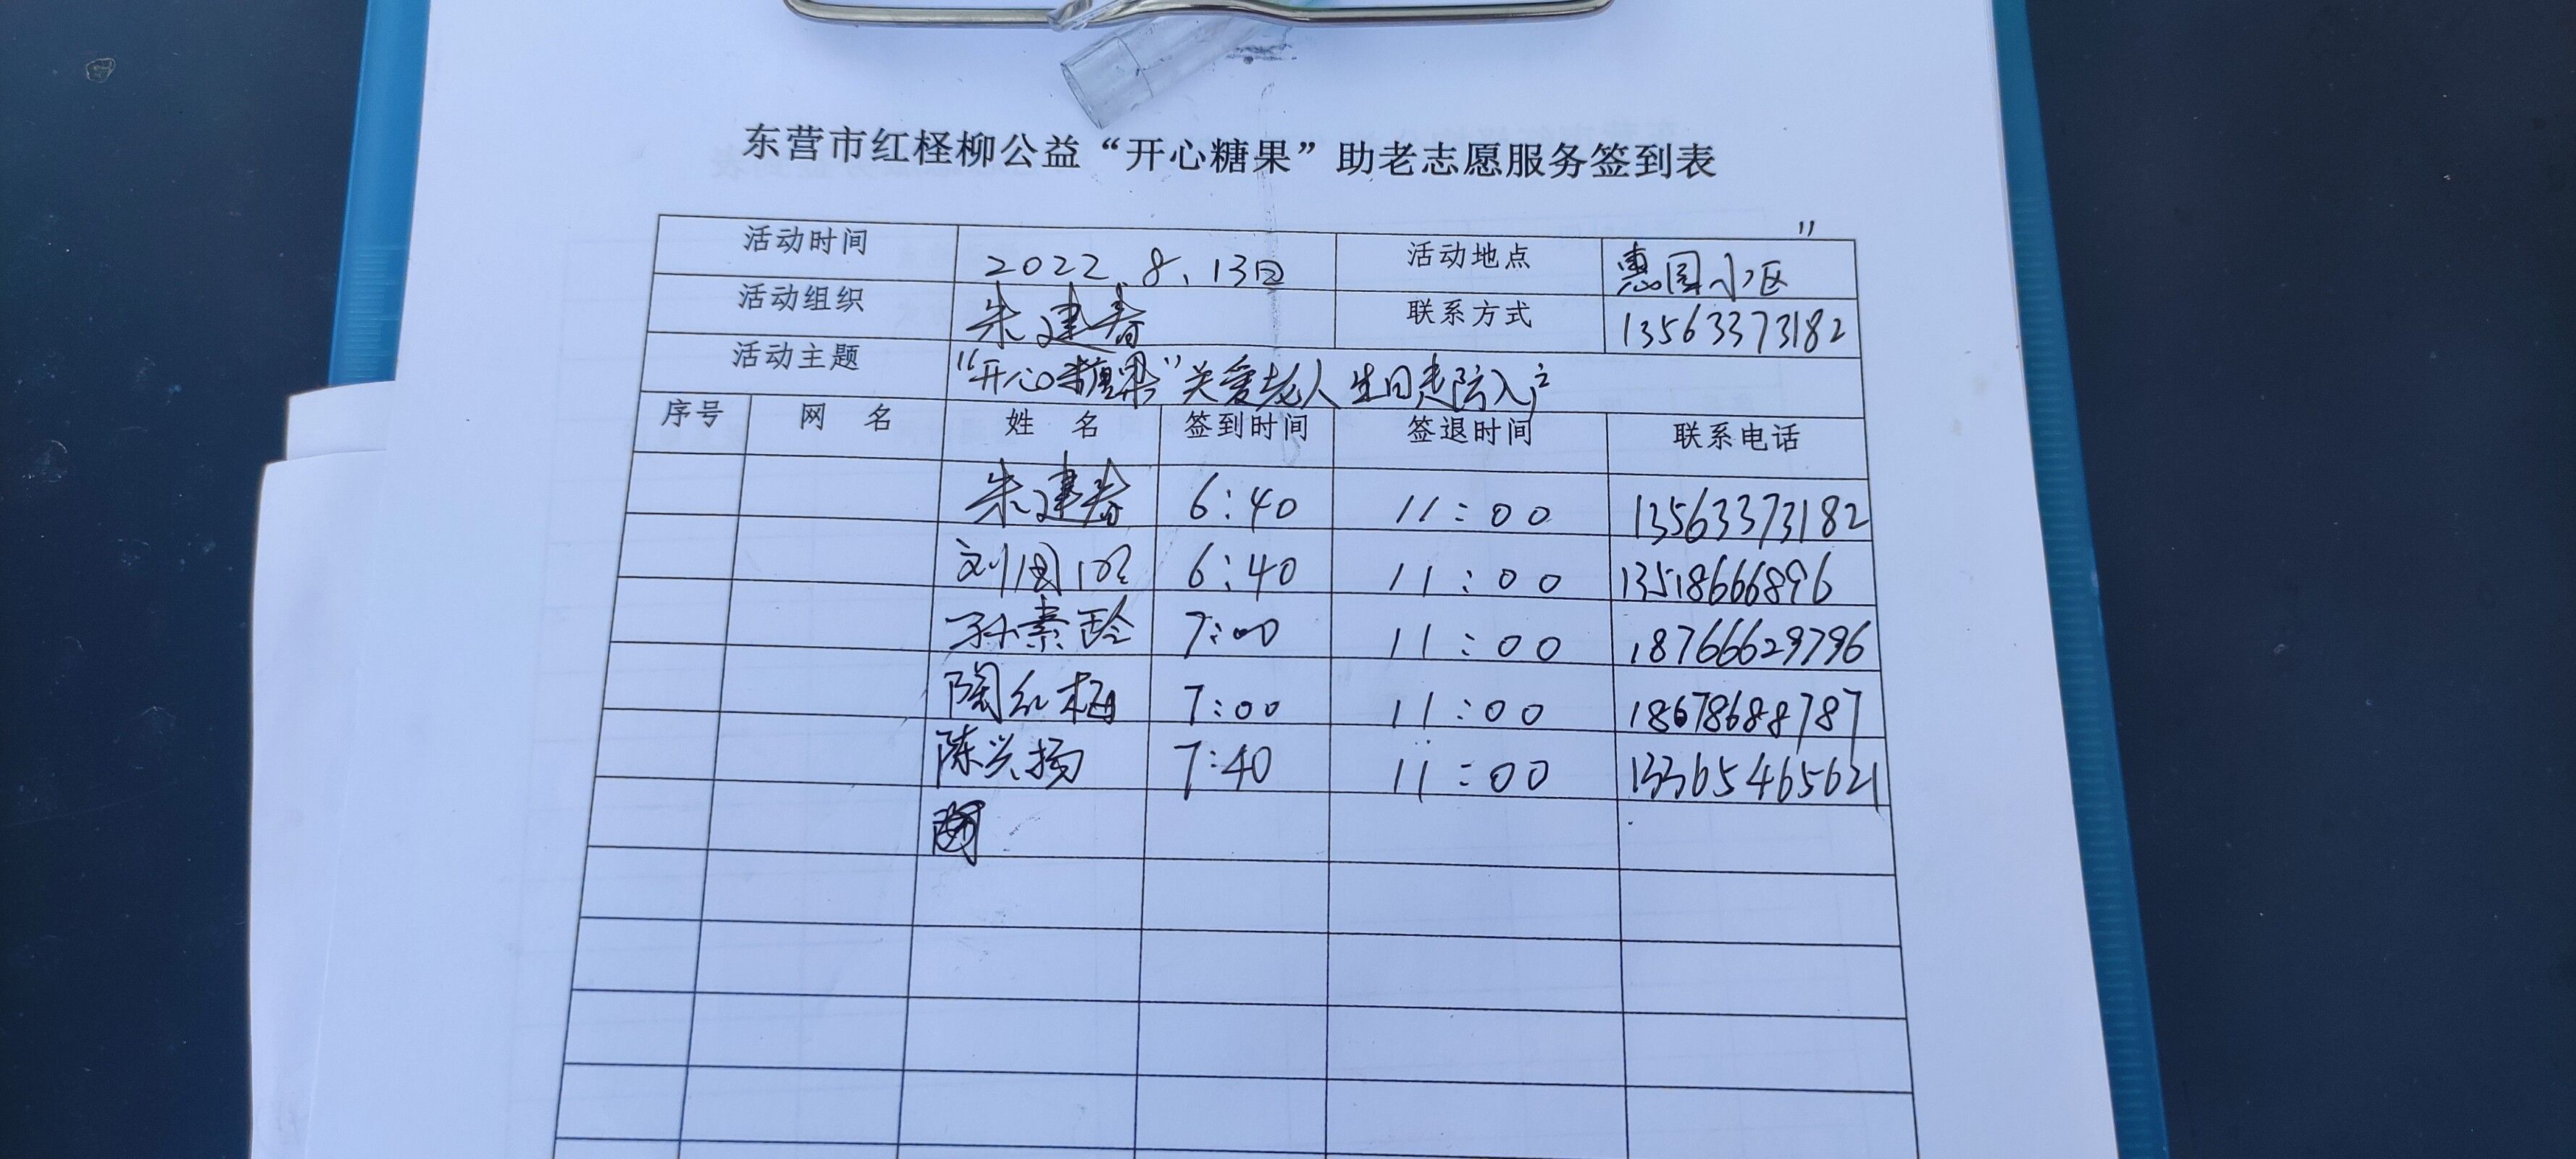 东营市红柽柳公益“开心糖果”助老志愿服务签到表
活动时间 2022.8.13日 活动地点 惠园小区
活动组织 朱建春 联系方式 13563373182
活动主题 “开心糖果”关爱老人生日走访入户
序号 网 名 姓 名 签到时间 签退时间 联系电话
朱建春 6:40 11:00 13563373182
刘国 6:40 11:00 13518666896
孙素玲 7:00 11:00 18766629796
陶红梅 7:00 11:00 18678688787
陈兴扬 7:40 11:00 13365465621